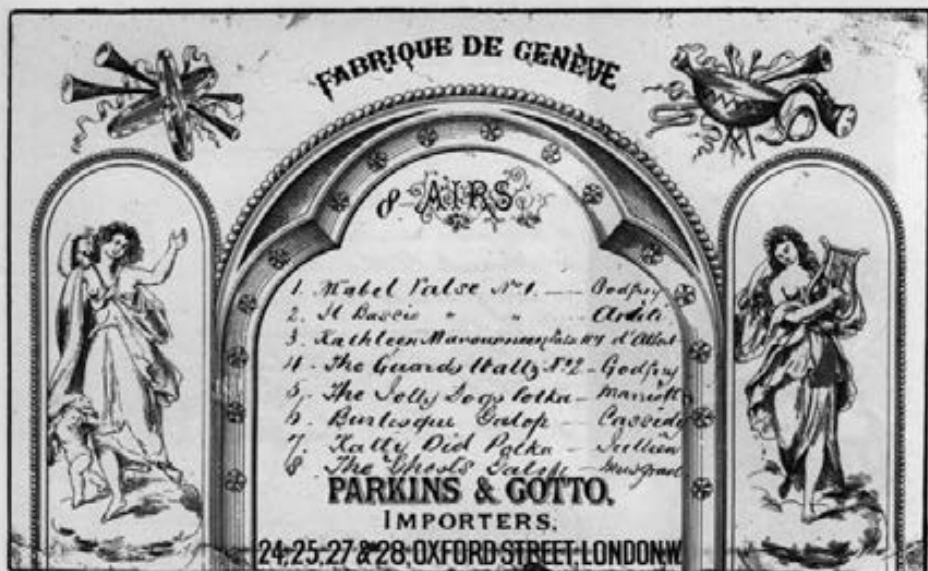 FABRIQUE DE GENÈVE
8 AIRS
1. Mabel Valse No. 1. — Godfrey
2. Il Baccio " " — Arditi
3. Kathleen Mavourneen d'Albert
4. The Guards Waltz No. 2 — Godfrey
5. The Jolly Dogs Polka — Marriott
6. Burlesque Galop — Cassidy
7. Katty Did Polka — Jullien
8 The Ghosts Galop — Musgrave
PARKINS & GOTTO,
IMPORTERS.
24,25,27 & 28, OXFORD STREET, LONDON.W